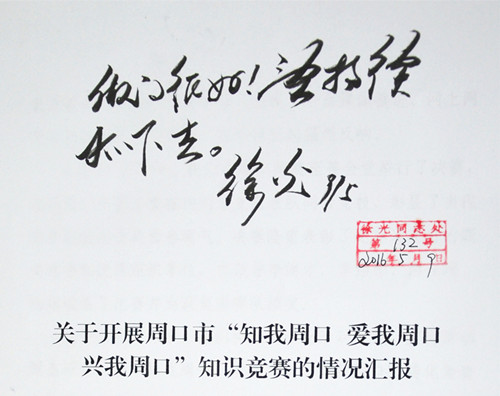 做的很好！要持续
抓下去。
徐光 9/5
徐光同志处
第132号
2016年5月9日
关于开展周口市“知我周口 爱我周口
兴我周口”知识竞赛的情况汇报